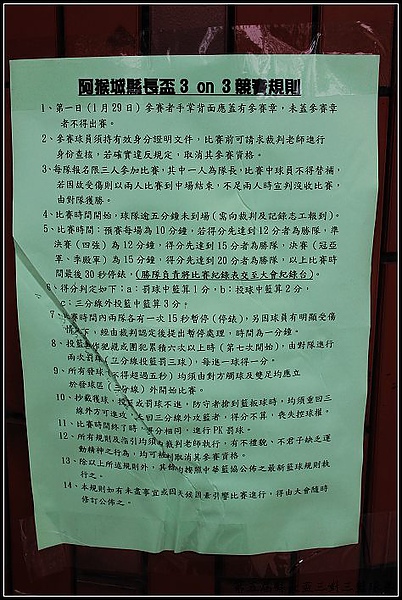 阿猴城縣長盃 3 on 3 競賽規則
1、第一日(1月29日)參賽者手掌背面應蓋有參賽章，未蓋參賽章
者不得出賽。
2、參賽球員須持有效身分證明文件，比賽前可請求裁判老師進行
身份查核，若確實違反規定，取消其參賽資格。
3、每隊報名限三人參加比賽，其中一人為隊長，比賽中球員不得替補，
若因故受傷則以兩人比賽到中場結束，不足兩人時宣判沒收比賽，
由對隊獲勝。
4、比賽時間開始，球隊逾五分鐘未到場(需向裁判及記錄志工報到)。
5、比賽時間：預賽每場為10分鐘，若得分先達到12分者為勝隊，準
決賽(四強)為12分鐘，得分先達到15分者為勝隊，決賽(冠亞
軍、季殿軍)為15分鐘，得分先達到20分者為勝隊，以上比賽時
間最後30秒停錶，(勝隊負責將比賽紀錄表交至大會紀錄台)。
6、得分判定如下：a：罰球中籃算1分，b：投球中籃算2分，
c：三分線外投籃中籃算3分。
7、比賽時間內兩隊各有一次15秒暫停(停錶)，另因球員有明顯受傷
情況下，經由裁判認定後提出暫停處理，時間為一分鐘。
8、投籃動作犯規或團犯累積六次以上時(第七次開始)，由對隊進行
兩次罰球(三分線投籃罰三球)，每進一球得一分。
9、所有發球(不得超過五秒)均須由對方觸球及雙足均應立
於發球區(三分線)外開始比賽。
10、抄截獲球，投籃或罰球不進，防守者搶到籃板球時，均須重回三
線外方可進攻，未回三分線外攻籃者，得分不算，喪失控球權。
11、比賽時間終了時，得分相同，進行PK罰球。
12、所有規則及指引均須由裁判老師執行，有不禮貌、不君子缺乏運
動精神之行為，均可被判取消其參賽資格。
13、除以上所述規則外，其餘均按照中華籃協公佈之最新籃球規則執
行之。
14、本規則如有未盡事宜或因天候因素引響比賽進行，得由大會隨時
修訂公佈之。